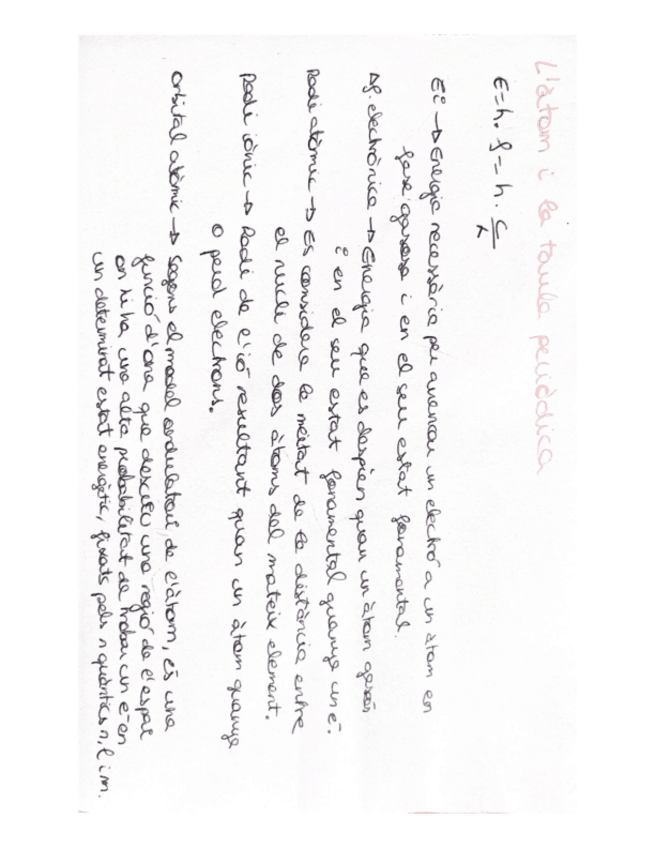 L'àtom i la taula periòdica
E=h·f=h·c/λ
Ei → Energia necessària per arrencar un electró a un àtom en
fase gasosa i en el seu estat fonamental.
Af. electrònica → Energia que es desprèn quan un àtom gasós
i en el seu estat fonamental guanya un e⁻.
Radi atòmic → Es considera la meitat de la distància entre
el nucli de dos àtoms del mateix element.
Radi iònic → Radi de l'ió resultant quan un àtom guanya
o perd electrons.
orbital atòmic → Segons el model ondulatori de l'àtom, és una
funció d'ona que descriu una regió de l'espai
on hi ha una alta probabilitat de trobar un e⁻ en
un determinat estat energètic, fixats pels n quàntics n, l i m.